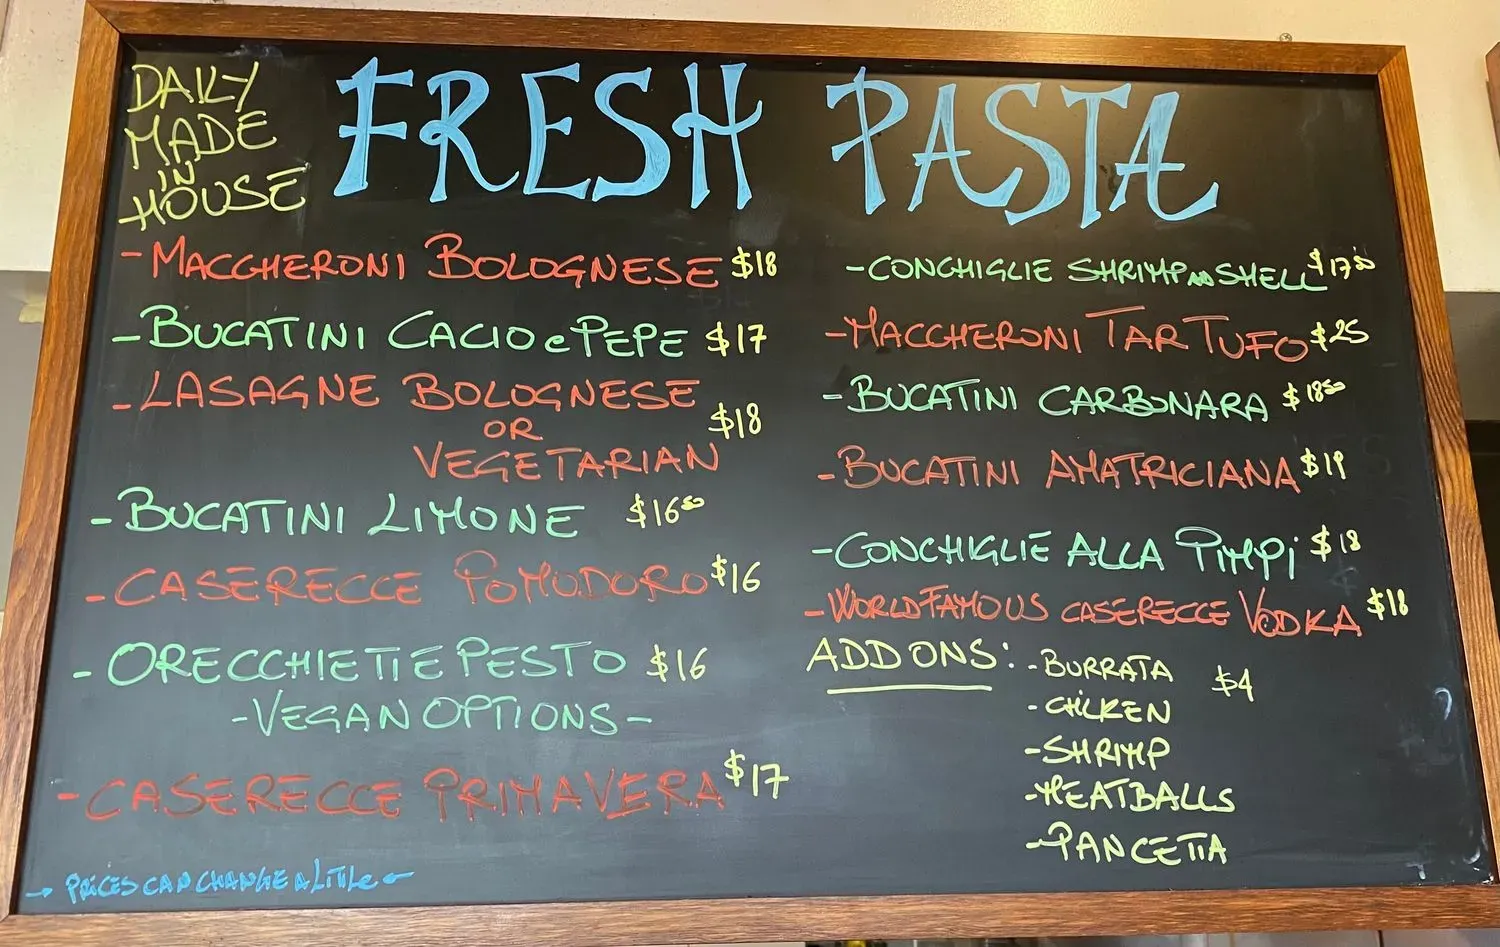 DAILY
MADE
IN
HOUSE
FRESH PASTA
- MACCHERONI BOLOGNESE $18
- BUCATINI CACIO e PEPE $17
- LASAGNE BOLOGNESE
OR
VEGETARIAN $18
- BUCATINI LIMONE $16.50
- CASERECCE POMODORO $16
- ORECCHIETTE PESTO $16
- VEGAN OPTIONS -
- CASERECCE PRIMAVERA $17
→ PRICES CAN CHANGE A LITTLE ←
- CONCHIGLIE SHRIMP AND SHELL $17.50
- MACCHERONI TARTUFO $25
- BUCATINI CARBONARA $18.50
- BUCATINI AMATRICIANA $19
- CONCHIGLIE ALLA PIMPi $18
- WORLD FAMOUS CASERECCE VODKA $18
ADD ONS: - BURRATA $4
- CHICKEN
- SHRIMP
- MEATBALLS
- PANCETTA